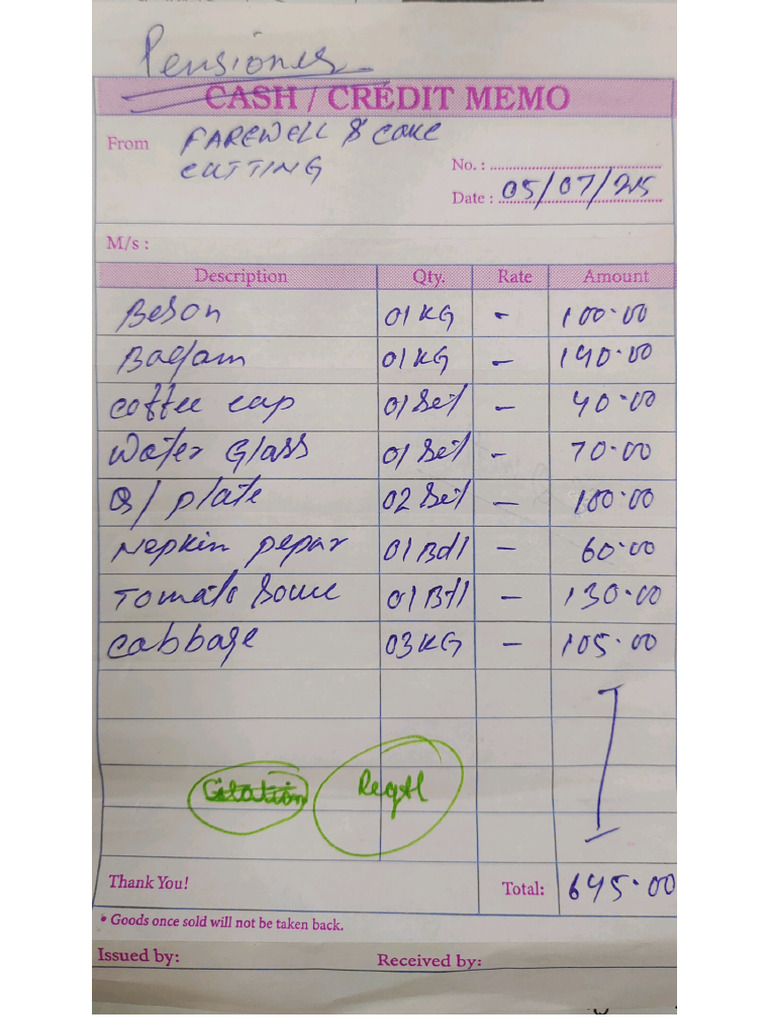 Pensioner
CASH / CREDIT MEMO
From FAREWELL & CAKE
CUTTING
No. :
Date : 05/07/25
M/s :
Description Qty. Rate Amount
Beson 01 KG - 100.00
01 KG - 140.00
coffee cup 01 Set - 40.00
Water Glass 01 Set - 70.00
Q/ plate 02 Set - 100.00
Nepkin pepar 01 Bdl - 60.00
Tomato Souce 01 Btl - 130.00
Cabbage 03 KG - 105.00
Regtl
Thank You! Total: 645.00
* Goods once sold will not be taken back.
Issued by: Received by: